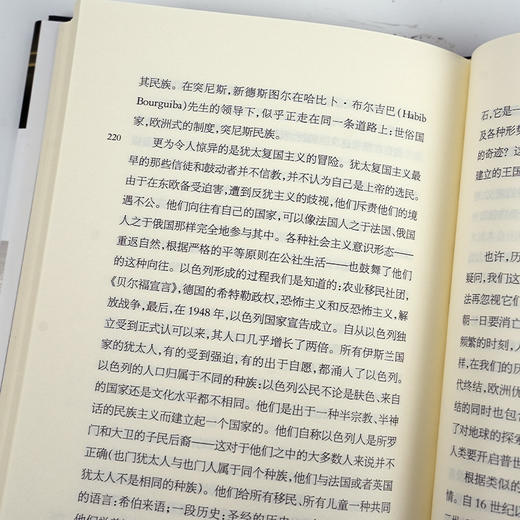 其民族。在突尼斯，新德斯图尔在哈比卜·布尔吉巴（Habib
Bourguiba）先生的领导下，似乎正走在同一条道路上：世俗国
家，欧洲式的制度，突尼斯民族。
220
更为令人惊异的是犹太复国主义的冒险。犹太复国主义最
早的那些信徒和鼓动者并不信教，并不认为自己是上帝的选民。
由于在东欧备受迫害，遭到反犹主义的歧视，他们斥责他们的境
遇不公。他们向往有自己的国家，可以像法国人之于法国、俄国
人之于俄国那样完全地参与其中。各种社会主义意识形态——
重返自然，根据严格的平等原则在公社生活——也鼓舞了他们
的这种向往。以色列形成的过程我们是知道的：农业移民社团，
《贝尔福宣言》，德国的希特勒政权，恐怖主义和反恐怖主义，解
放战争，最后，在 1948 年，以色列国家宣告成立。自从以色列独
立受到正式认可以来，其人口几乎增长了两倍。所有伊斯兰国
家的犹太人，有的受到强迫，有的出于自愿，都涌入了以色列。
以色列的人口归属于不同的种族：以色列公民不论是肤色、来自
的国家还是文化水平都不相同。他们是出于一种半宗教、半神
话的民族主义而建立起一个国家的。他们自称以色列人是所罗
门和大卫的子民后裔——这对于他们之中的大多数人来说并不
正确（也门犹太人与也门人属于同个种族，他们与法国或者英国
犹太人不是相同的种族）。他们给所有移民、所有儿童一种共同
的语言：希伯来语；一段历史：圣经的历史
石，它是一
及各种形
的奇迹？这
建立的王国
也许，历
疑问，我们这
法再忽视它们
朝一日要消亡
频繁的时刻，人
在，我们的历
代终结，欧洲优
结的同时也包含
了对地球的探索
人类要开启普世
根据类似的
情。自 16 世纪以